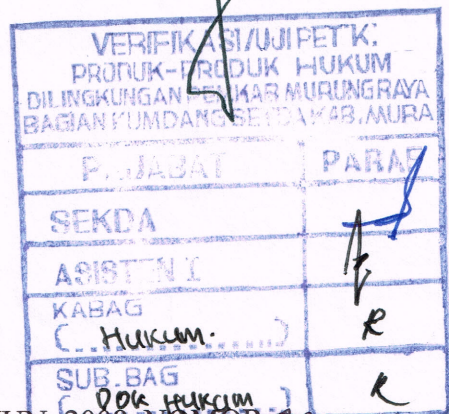 VERIFIKASI/UJI PETIK:
PRODUK-PRODUK HUKUM
DILINGKUNGAN PEMKAB MURUNG RAYA
BAGIAN KUMDANG SETDA KAB. MURA
PEJABAT PARAF
SEKDA
ASISTEN I
KABAG
(Hukum.) R
SUB.BAG
(DOK HUKUM) R